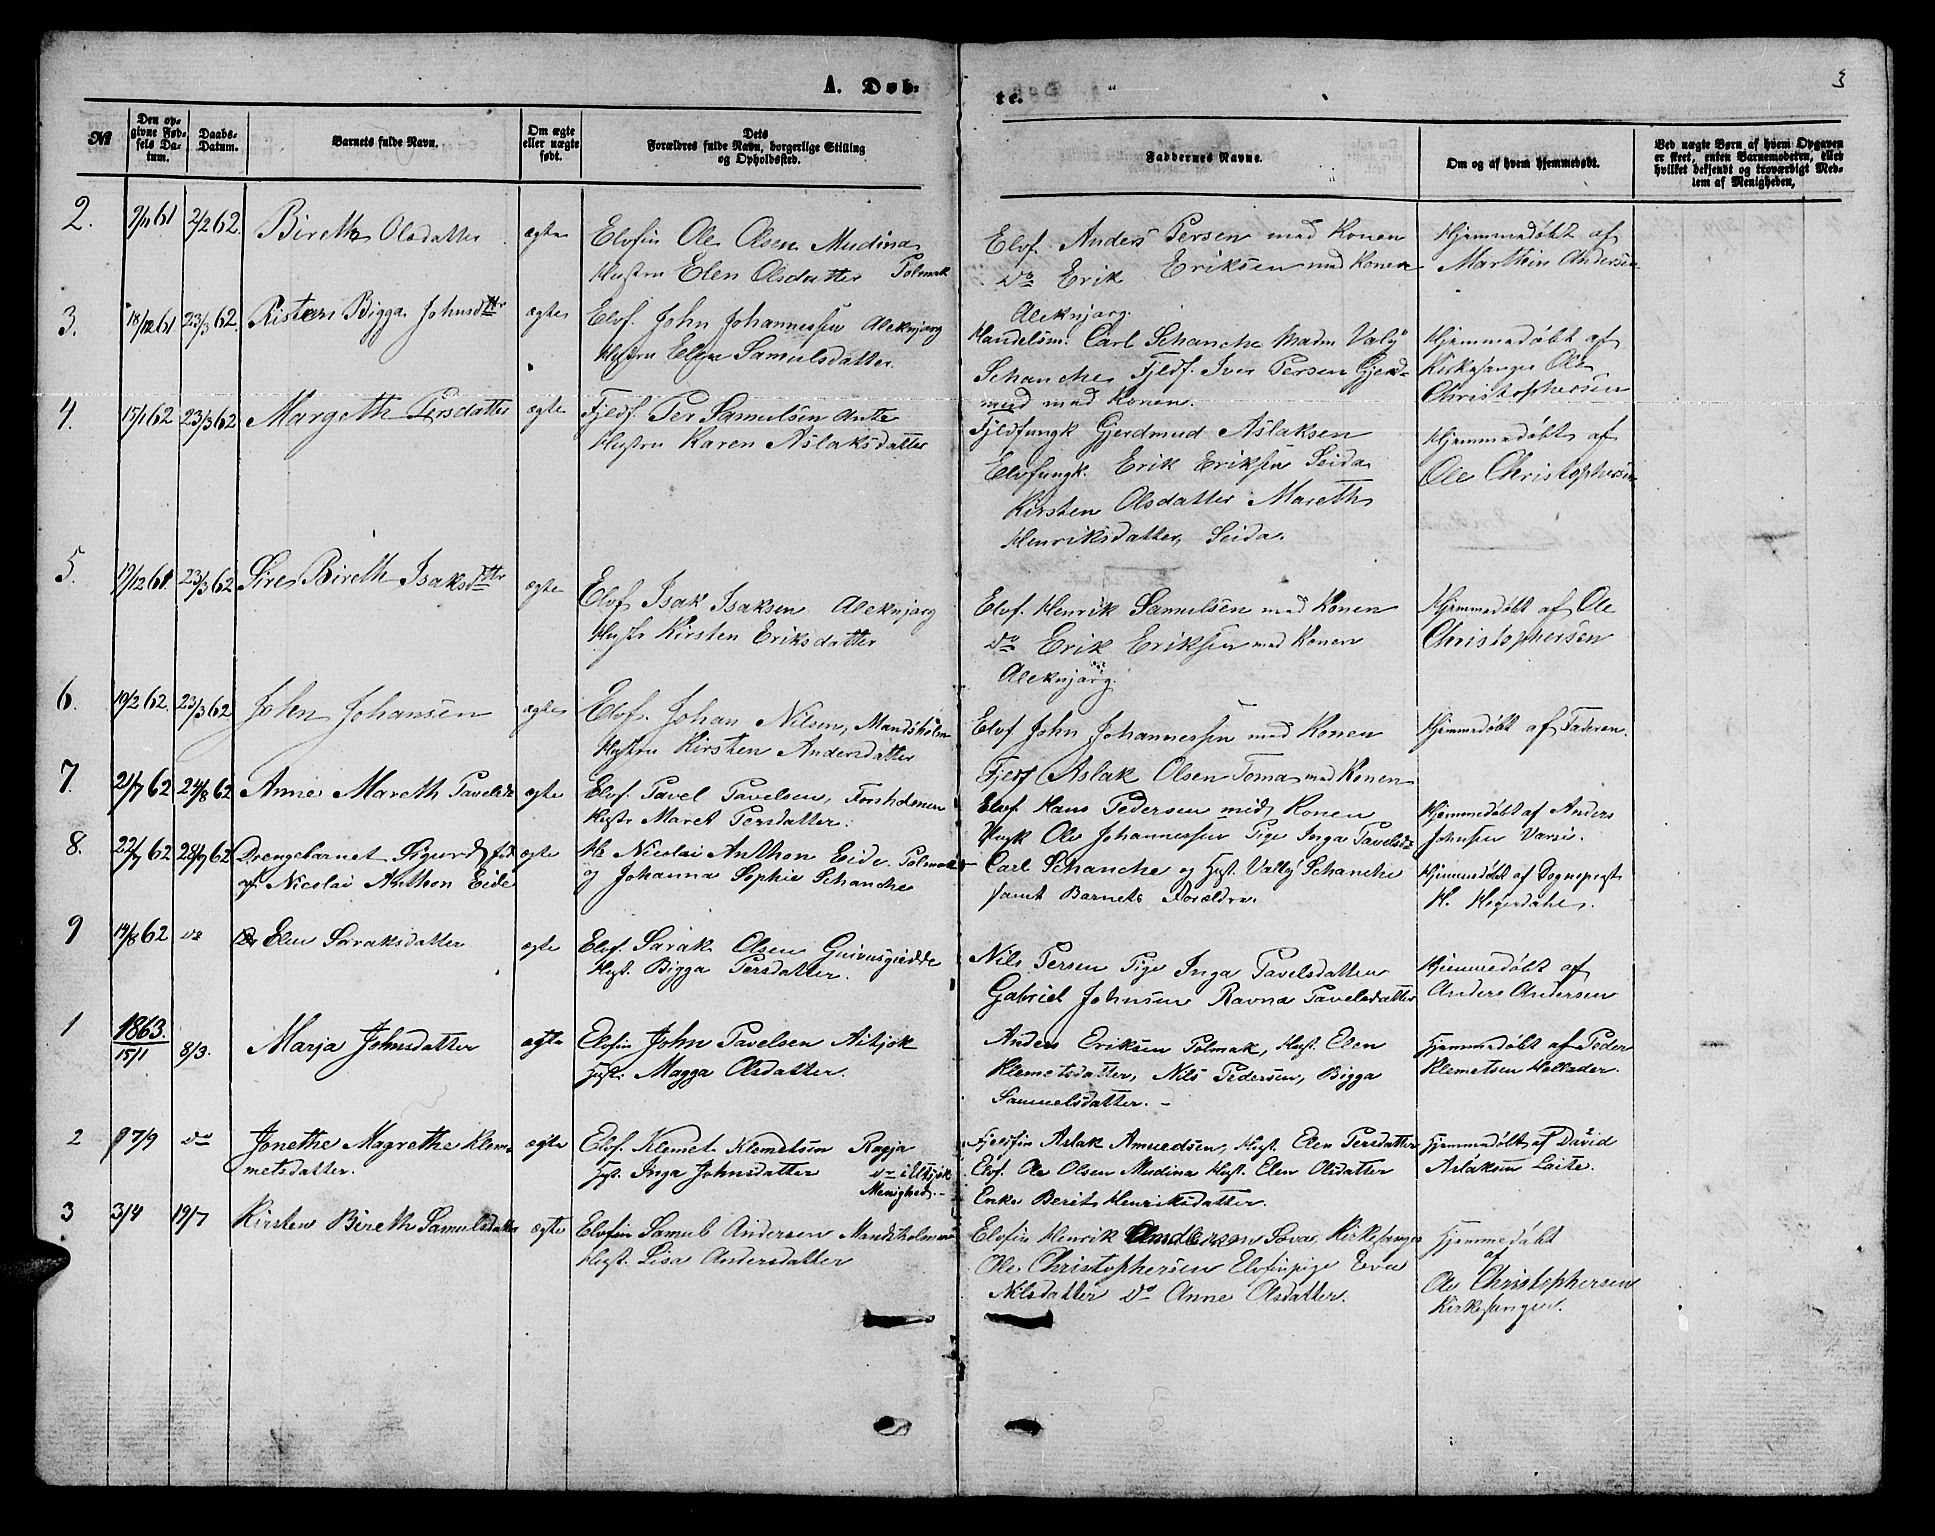 A. Døb-
te.
3
№
Den op-
givne Fød-
sels Da-
tum.
Daabs-
Datum.
Barnets fulde Navn.
Om ægte
eller uægte
født.
Dets
Forældres fulde Navn, borgerlige Stilling
og Opholdssted.
Faddernes Navne.
Om og af hvem hjemmedøbt.
Ved uægte Børn af hvem Opgaven
er skeet, enten Barnemoderen, eller
hvilket bekjendt og troværdigt Med-
lem af Menigheden,
2. 9/11 61 2/2 62. Bireth Olsdatter ægte Elvfin Ole Olsen Mudina
Hustru Elen Olsdatter Polmak
Elvf. Anders Persen med Konen
Do Erik Eriksen med Konen
Aleknjarg.
Hjemmedøbt af
Marthin Andersen
3. 18/12 61 23/3 62. Risten Bigga Johnsdttr ægte Elvf. John Johannessen Aleknjarg
Hustru Elen Samulsdatter.
Handelsm. Carl Schanche Madm Valy
Schanche, Fjeldf. Iver Persen Gjerd-
mud med Konen.
Hjemmedøbt af
Kirkesanger Ole
Christophersen
4. 15/1 62 23/3 62 Margeth Persdatter ægte Fjeldf Per Samulsen Ante
Hustru Karen Aslaksdatter
Fjeldfungk Gjerdmud Aslaksen
Elvfungk. Erik Eriksen Seida
Kirsten Olsdatter Mareth
Henriksdatter, Seida.
Hjemmedøbt af
Ole Christophersen
5. 19/12 61 23/3 62 Sire Bireth Isaksdttr ægte Elvf Isak Isaksen Aleknjarg
Hustr Kirsten Eriksdatter
Elvf. Henrik Samulsen med Konen
Do Erik Eriksen med Konen
Aleknjarg.
Hjemmedøbt af Ole
Christophersen
6. 19/2 62. 23/3 62 John Johansen ægte Elvf. Johan Nilsen, Mandsholm
Hustru Kirsten Andersdatter
Elvf John Johannessen med Konen
Fjeldf Aslak Olsen Toma med Konen
Hjemmedøbt af Faderen.
7. 21/7 62 24/8 62 Anne Mareth Pavelsd. ægte Elvf. Pavel Pavelsen, Forsholmen
Hustr Maret Persdatter.
Elvf. Hans Pedersen med Konen
Ungk Ole Johannessen Pige Inga Pavelsd.
Hjemmedøbt af Anders
Johnsen Varsi.
8. 22/7 62 28/9 62 Drengebarnet Sigurd
af Nicolai Anthon Eide ægte Hr Nicolai Anthon Eide Polmak
og Johanna Sophie Schanche
Carl Schanche og Hust. Valby Schanche
samt Barnets Forældre.
Hjemmedøbt af Sognepræst
H. Hegerdahl.
9 19/8 62 do Elen Saraksdatter ægte Elvf. Sarak Olsen Guivusgiedde
Hust. Bigga Persdatter.
Nils Persen Pige Inga Pavelsdatter
Gabriel Johnsen Ravna Pavelsdatter
Hjemmedøbt af
Anders Andersen
1 1863.
15/1 8/3. Marja Johnsdatter ægte Elvfin John Pavelsen Aitjok
Hust. Magga Olsdatter.
Anders Eriksen Polmak, Hust. Elen
Klemetsdatter, Nils Pedersen, Bigga
Samuelsdatter.
Hjemmedøbt af Peder
Klemetsen Hellader.
2 7/9 do Jonethe Magrethe Klem-
metsdatter. ægte Elvf. Klemet Klemetsen Ragja
Hust. Inga Johnsdatter do i Utsjok
Menighed.
Fjeldfin Aslak Amundsen, Hust. Elen Persdatter
Elvf. Ole Olsen Mudina Hust. Elen Olsdatter
Enke Berit Henriksdatter.
Hjemmedøbt af David
Aslaksen Laite.
3 3/4 19/7 Kirsten Bireth Samulsdatter ægte Elvfin Samul Andersen Mandsholmen
Hust. Lisa Andersdatter
Elvfin Henrik Andersen Sova, Kirkesanger
Ole Christophersen Elvfinpige Eva
Nilsdatter Do Anne Olsdatter.
Hjemmedøbt
af
Ole Christophersen
Kirkesanger.